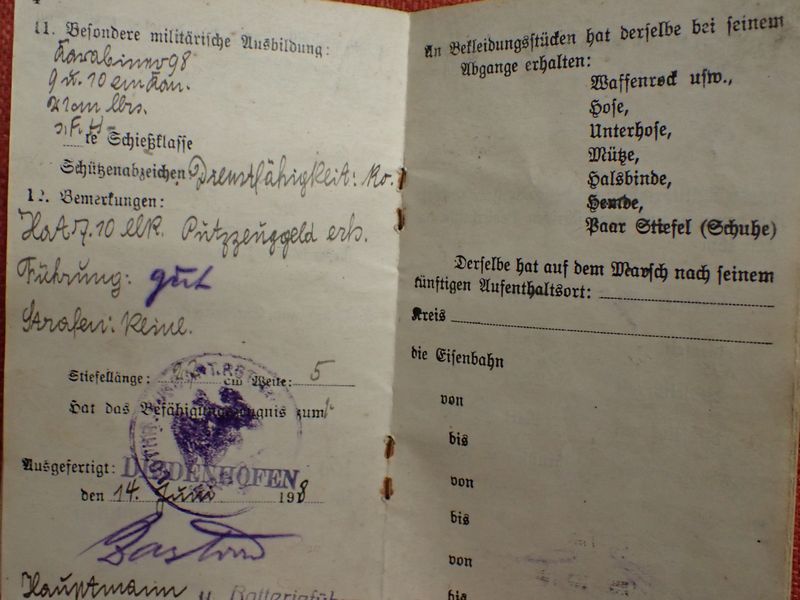 11. Besondere militärische Ausbildung:
Karabiner 98
9 u. 10 cm Kan.
21 cm Mrs.
s. F. H.
te Schießklasse
Schützenabzeichen Dienstfähigkeit: kv.
12. Bemerkungen:
Hat 7.10 Mk. Putzzeuggeld erh.
Führung: gut
Strafen: keine.
Stiefellänge: cm Weite: 5
Hat das Befähigungszeugnis zum
Ausgefertigt: DIEDENHOFEN
den 14. Juni 1918
Hauptmann u. Batterieführ
An Bekleidungsstücken hat derselbe bei seinem
Abgange erhalten:
Waffenrock usw.,
Hose,
Unterhose,
Mütze,
Halsbinde,
Hemde,
Paar Stiefel (Schuhe)
Derselbe hat auf dem Marsch nach seinem
künftigen Aufenthaltsort:
Kreis
die Eisenbahn
von
bis
von
bis
von
bis